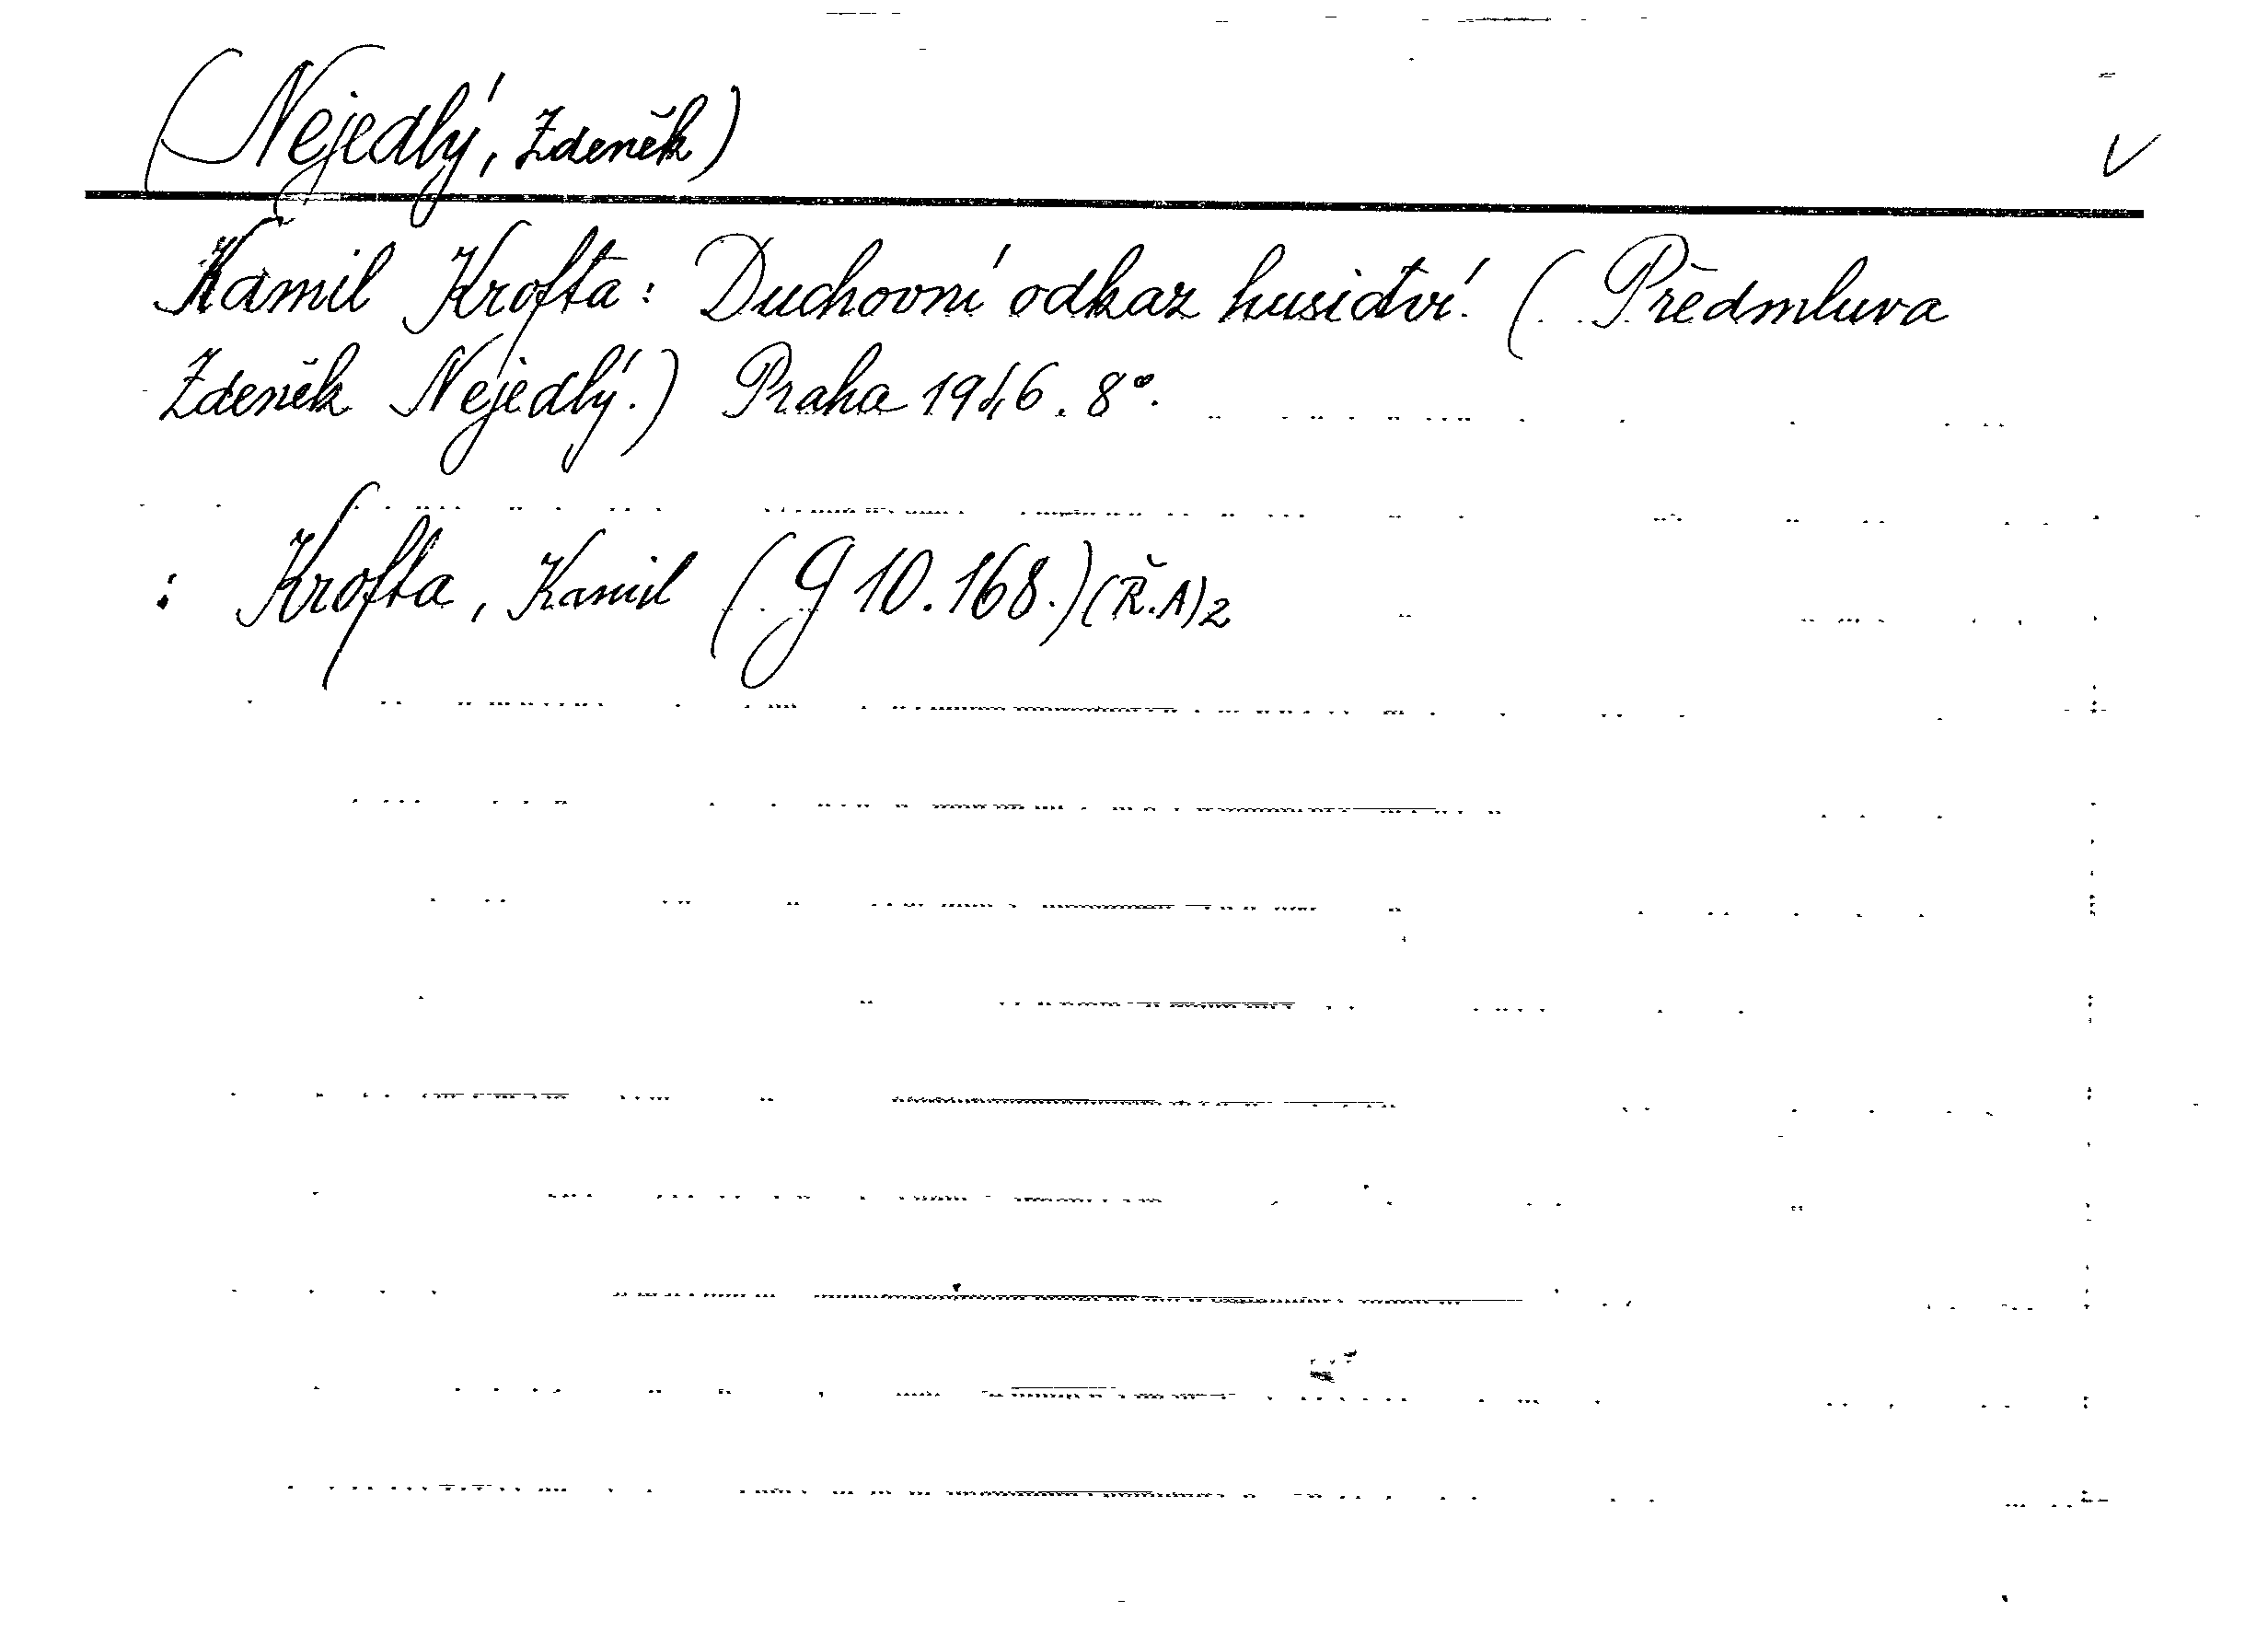 (Nejedlý, Zdeněk) V
Kamil Krofta: Duchovní odkaz husictví. (Předmluva
Zdeněk Nejedlý.) Praha 1946. 8°.
: Krofta, Kamil (G 10.168.) (Ř.A)2